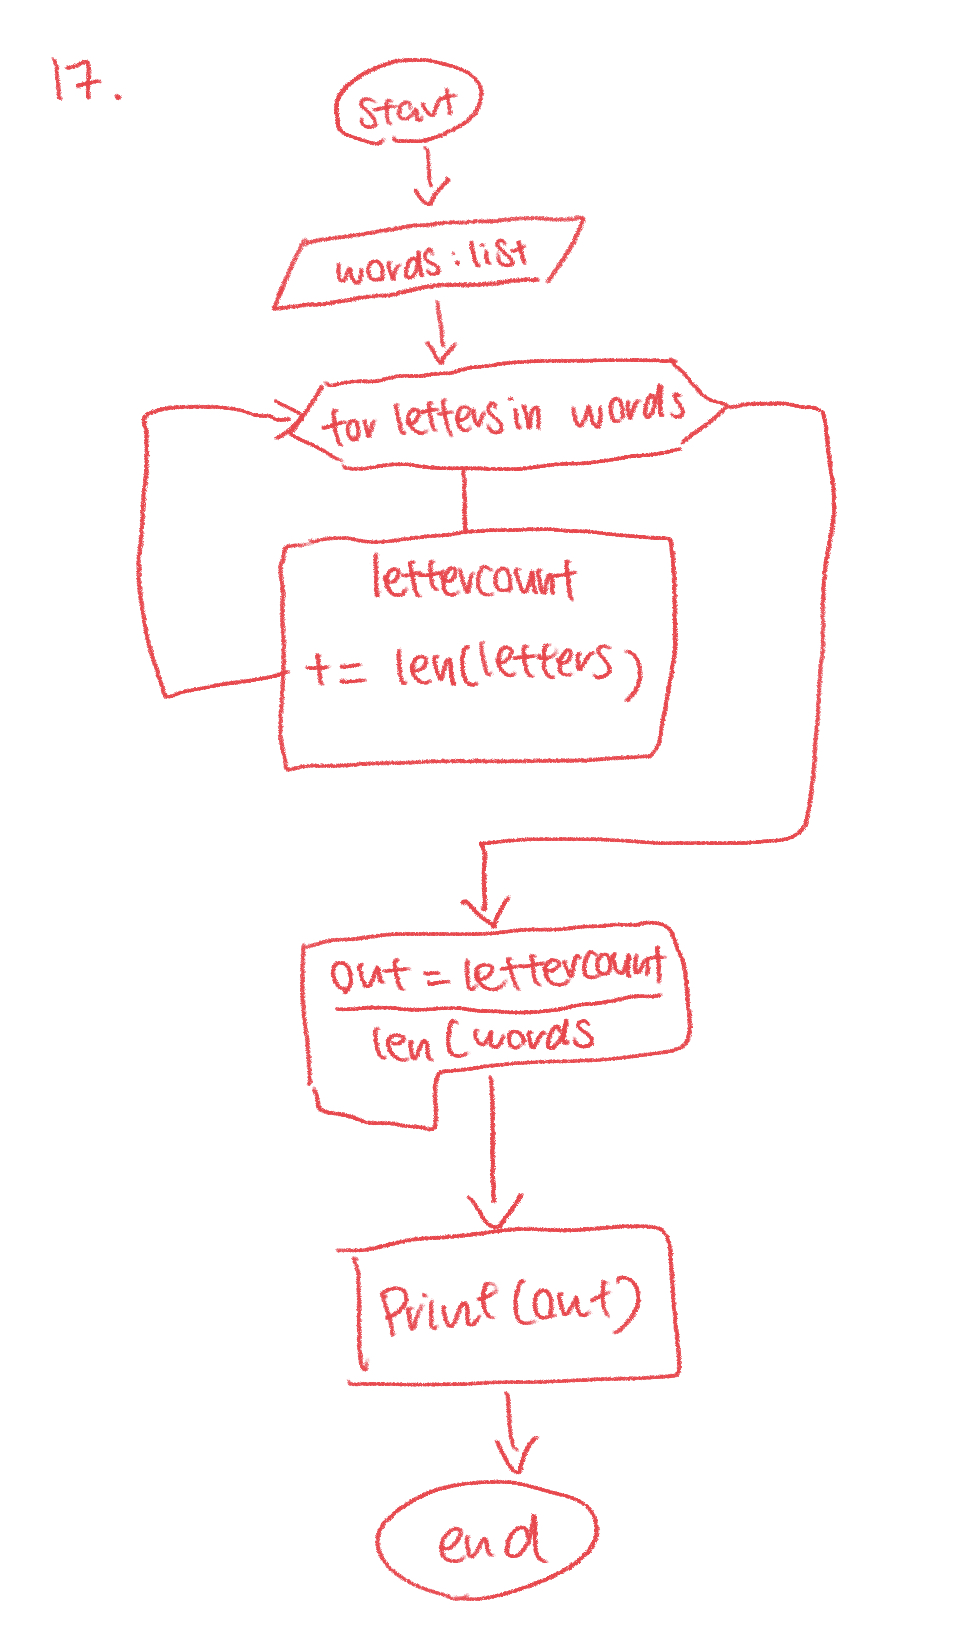 17.
start
words : list
for letters in words
lettercount
+= len(letters)
out = lettercount
len ( words
Print (out)
end